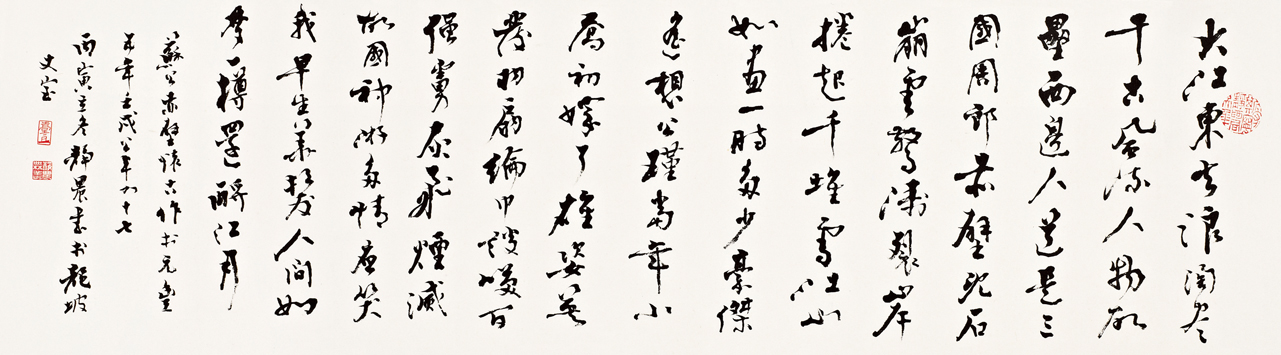 大江東去浪淘盡
千古風流人物故
壘西邊人道是三
國周郎赤壁亂石
崩雲驚濤裂岸
捲起千堆雪江山
如畫一時多少豪傑
遙想公瑾當年小
喬初嫁了雄姿英
發羽扇綸巾談笑間
強虜灰飛煙滅
故國神遊多情應笑
我早生華髮人間如
夢一樽還酹江月
蘇公赤壁懷古作於元豐
五年壬戌公年四十七
丙寅立冬靜農書於龍坡
丈室